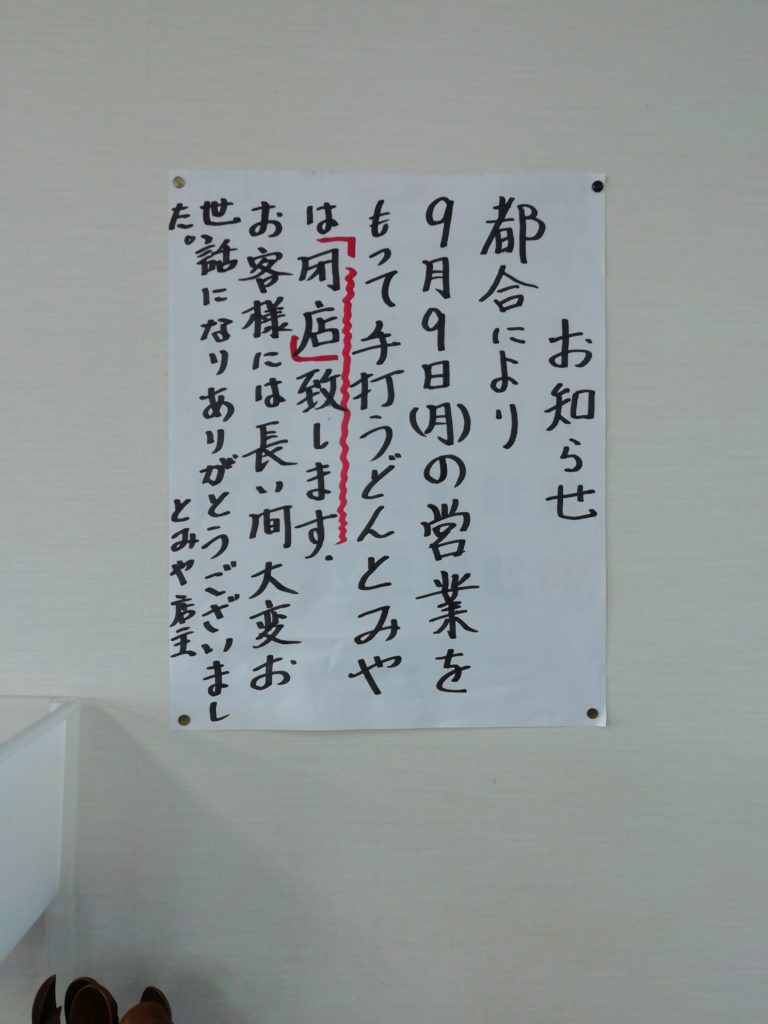 お知らせ
都合により
9月9日(月)の営業を
もって手打うどんとみや
は「閉店」致します.
お客様には長い間大変お
世話になりありがとうございまし
た。
とみや店主